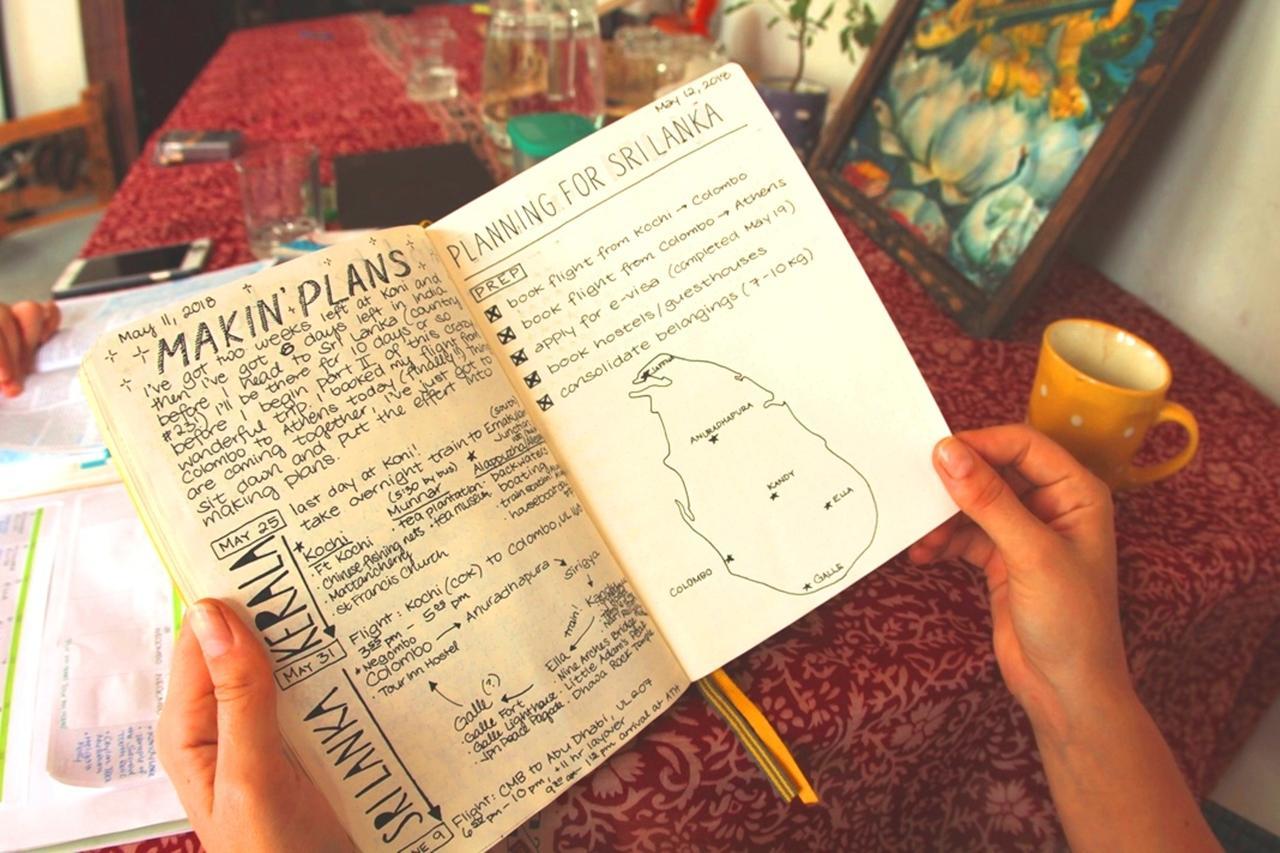 May 11, 2018
MAKIN' PLANS
I've got two weeks left at Koni and
then I've got 6 days left in India
before I head to Sri Lanka (country
#23!) I'll be there for 10 days or so
before I begin part II of this crazy
wonderful trip. I booked my flight from
Colombo to Athens today (finally!!) Things
are coming together, I've just got to
sit down and put the effort into
making plans.
MAY 25
KERALA
MAY 31
SRI LANKA
NE 9
last day at Koni!
take overnight train to Ernakulam
(south)
Junction
(5:30 by bus)
Munnar
· tea plantation
· tea museum
Alappuzha
· backwaters
boating
train station
· houseboat
Kochi
· Ft Kochi
· Chinese fishing nets
· Mattancherry
· St Francis Church
Flight: Kochi (COK) to Colombo, UL 166
Negombo
Colombo → Anuradhapura → Sirigya
Tour Inn Hostel
train!
Ella
Nine Arches Bridge
· Little Adam's Peak
· Dhowa Rock Temple
Galle (?)
· Galle Fort
· Galle Lighthouse
· Jpn Peace Pagoda
Flight: CMB to Abu Dhabi, UL 207
+11 hr layover
12 pm arrival at ATH
May 12, 2018
PLANNING FOR SRI LANKA
PREP
book flight from Kochi → Colombo
book flight from Colombo → Athens
apply for e-visa (completed May 19)
book hostels/guesthouses
consolidate belongings (7-10 kg)
ANURADHAPURA
KANDY
ELLA
COLOMBO
GALLE